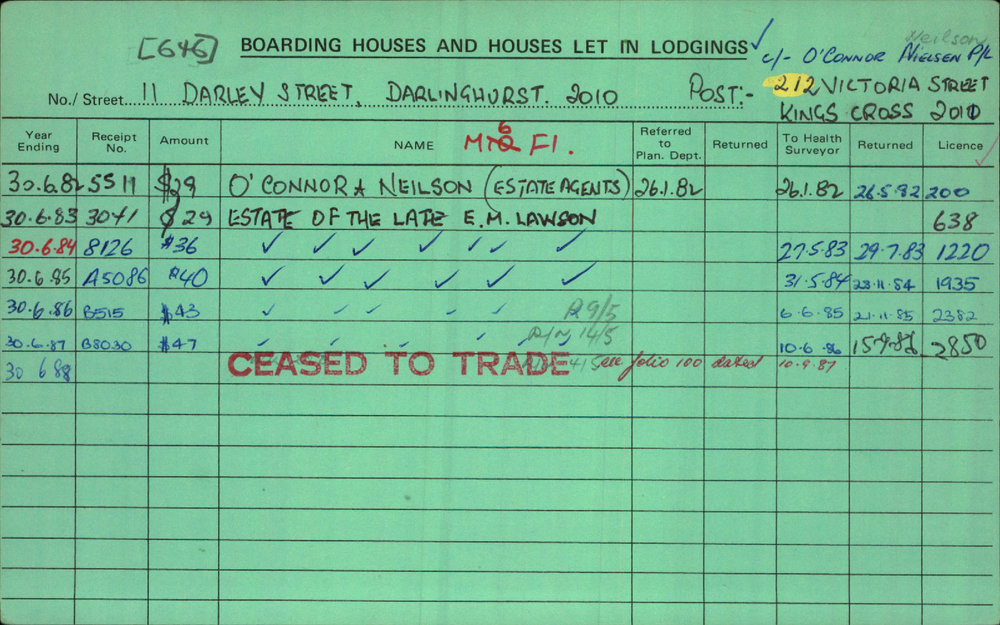 [646] BOARDING HOUSES AND HOUSES LET IN LODGINGS ✓ Neilson
c/- O'CONNOR NIELSEN P/L
No./ Street 11 DARLEY STREET, DARLINGHURST. 2010 POST:- 212 VICTORIA STREET
KINGS CROSS 2010
Year Ending Receipt No. Amount NAME 6 F1. Referred to Plan. Dept. Returned To Health Surveyor Returned Licence
30.6.82 5511 $29 O'CONNOR & NEILSON (ESTATE AGENTS) 26.1.82 26.1.82 26.5.82 200
30.6.83 3041 $29 ESTATE OF THE LATE E.M. LAWSON 638
30.6.84 8126 $36 ✓ ✓ ✓ ✓ ✓ ✓ 27.5.83 29.7.83 1220
30.6.85 A5086 $40 ✓ ✓ ✓ ✓ ✓ ✓ 31.5.84 23.11.84 1935
30.6.86 B515 $43 ✓ ✓ ✓ ✓ ✓ R9/5 6.6.85 21.11.85 2382
30.6.87 B8030 $47 ✓ ✓ ✓ ✓ ✓ 14/5 10.6.86 15.9.86 2850
30 6 88 CEASED TO TRADE see folio 100 dated 10.9.87